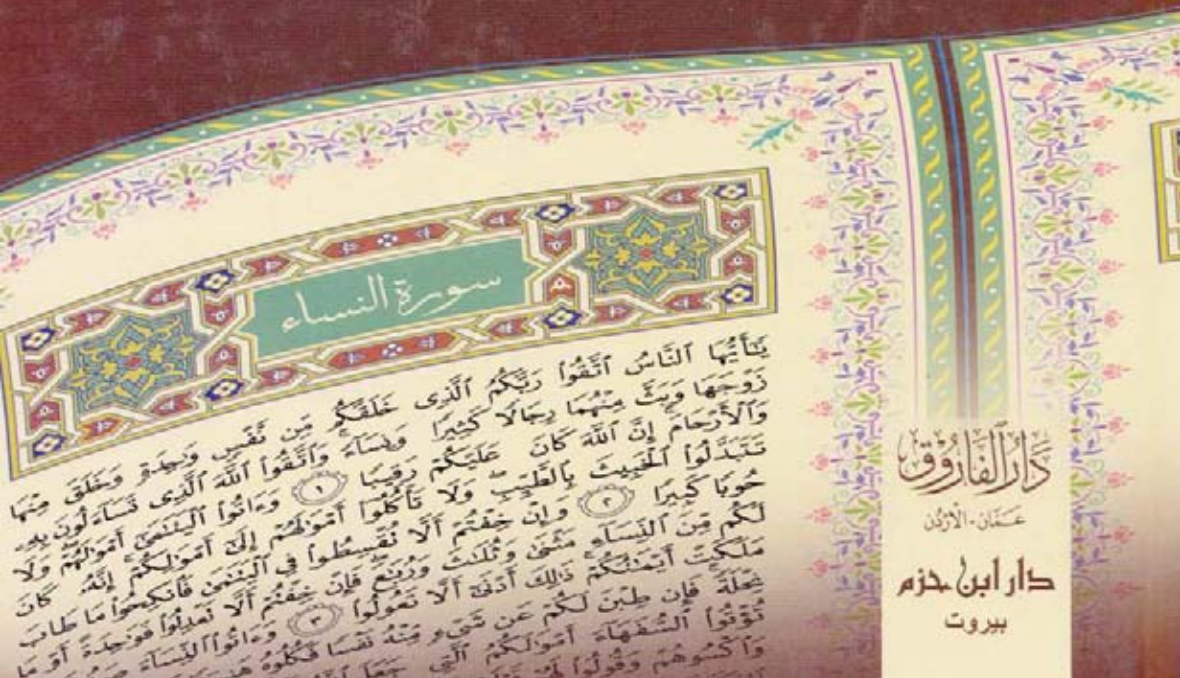 سورة النساء
يَٰٓأَيُّهَا ٱلنَّاسُ ٱتَّقُوا۟ رَبَّكُمُ ٱلَّذِى خَلَقَكُم مِّن نَّفْسٍ وَٰحِدَةٍ وَخَلَقَ مِنْهَا
زَوْجَهَا وَبَثَّ مِنْهُمَا رِجَالًا كَثِيرًا وَنِسَآءً وَٱتَّقُوا۟ ٱللَّهَ ٱلَّذِى تَسَآءَلُونَ بِهِۦ
وَٱلْأَرْحَامَ إِنَّ ٱللَّهَ كَانَ عَلَيْكُمْ رَقِيبًا ١ وَءَاتُوا۟ ٱلْيَتَٰمَىٰٓ أَمْوَٰلَهُمْ وَلَا
تَتَبَدَّلُوا۟ ٱلْخَبِيثَ بِٱلطَّيِّبِ وَلَا تَأْكُلُوٓا۟ أَمْوَٰلَهُمْ إِلَىٰٓ أَمْوَٰلِكُمْ إِنَّهُۥ كَانَ
حُوبًا كَبِيرًا ٢ وَإِنْ خِفْتُمْ أَلَّا تُقْسِطُوا۟ فِى ٱلْيَتَٰمَىٰ فَٱنكِحُوا۟ مَا طَابَ
لَكُم مِّنَ ٱلنِّسَآءِ مَثْنَىٰ وَثُلَٰثَ وَرُبَٰعَ فَإِنْ خِفْتُمْ أَلَّا تَعْدِلُوا۟ فَوَٰحِدَةً أَوْ مَا
مَلَكَتْ أَيْمَٰنُكُمْ ذَٰلِكَ أَدْنَىٰٓ أَلَّا تَعُولُوا۟ ٣ وَءَاتُوا۟ ٱلنِّسَآءَ
نِحْلَةً فَإِن طِبْنَ لَكُمْ عَن شَىْءٍ مِّنْهُ نَفْسًا فَكُلُوهُ
تُؤْتُوا۟ ٱلسُّفَهَآءَ أَمْوَٰلَكُمُ ٱلَّتِى جَعَلَ
وَٱكْسُوهُمْ وَقُولُوا۟
دَارُ الفَارُوق
عَمَّان - الأُرْدُن
دار ابن حزم
بيروت